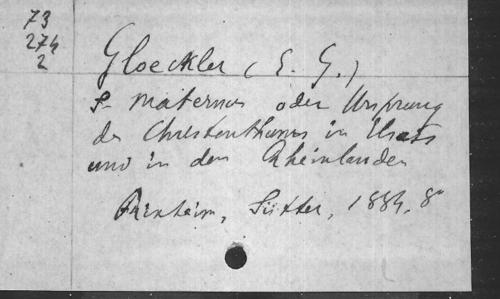 73
274
2
Gloeckler (L. G.)
S. Maternus oder Ursprung
des Christenthums in Elsass
und in den Rheinlanden
Rixheim, Sutter, 1884, 8°